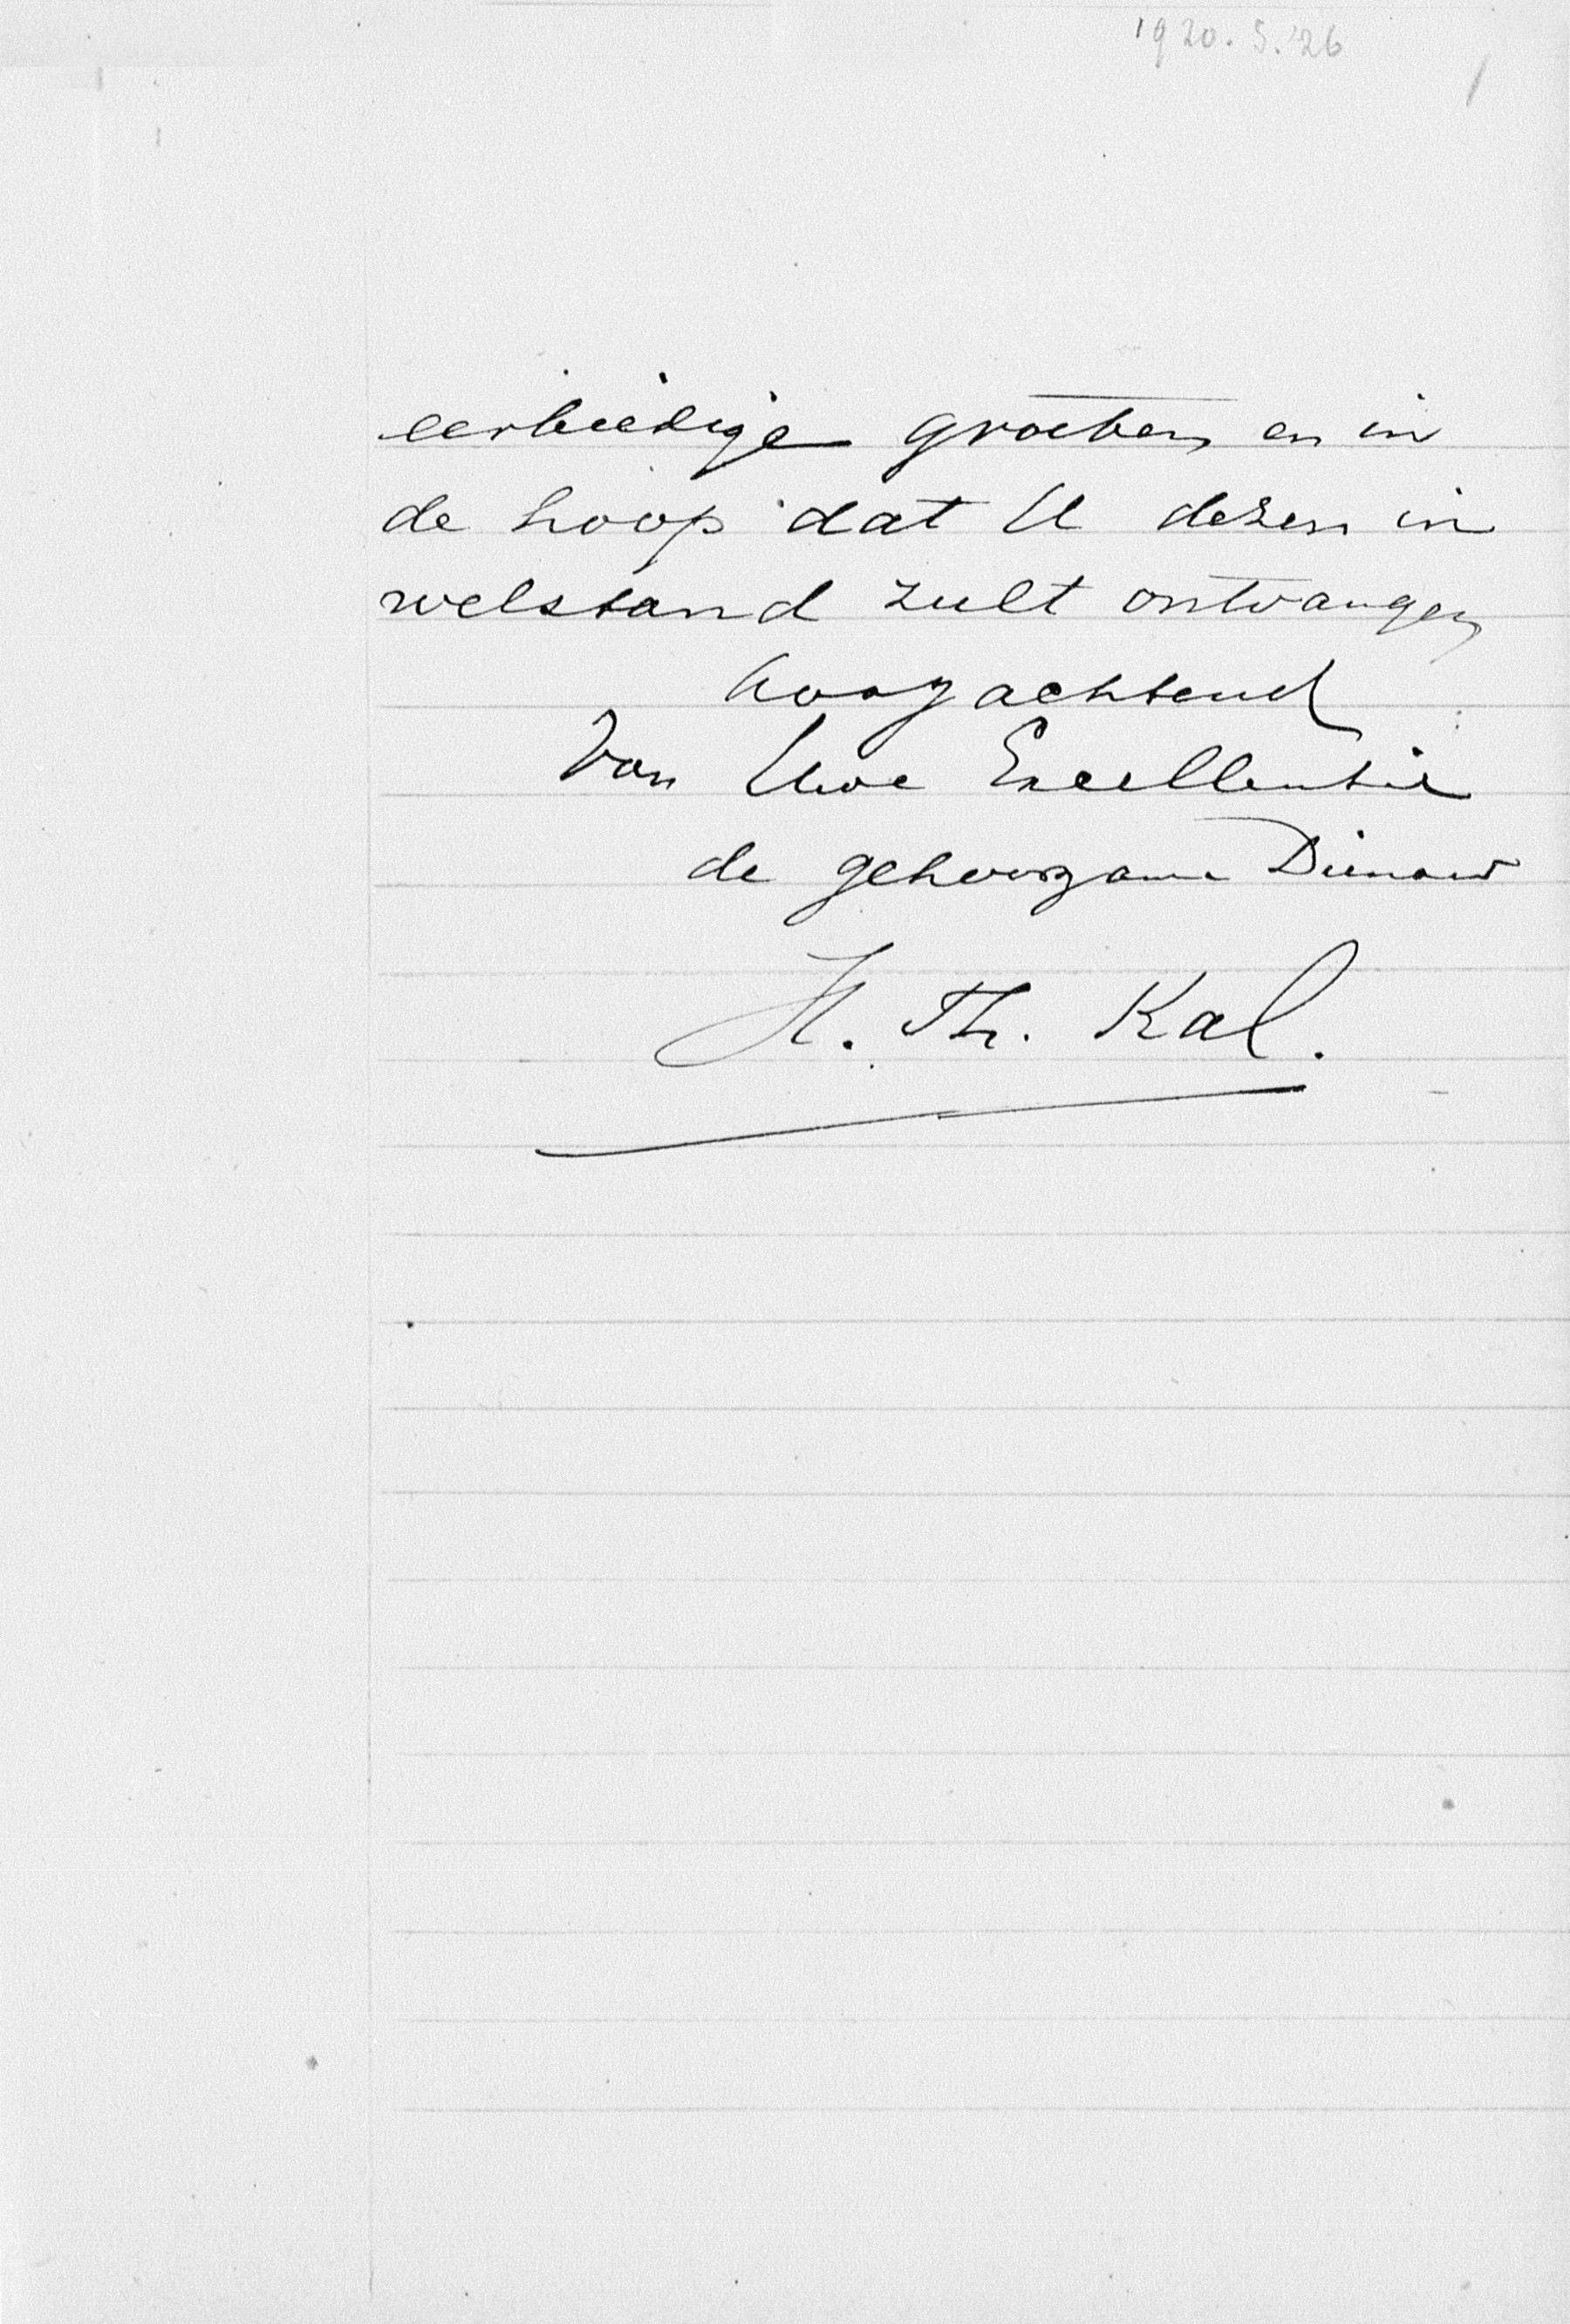 1920.5.26
eerbiedige groeten en in
de hoop dat U dezen in
welstand zult ontvangen
hoogachtend
Van Uwe Excellentie
de gehoorzame Dienaar
H. Th. Kal.